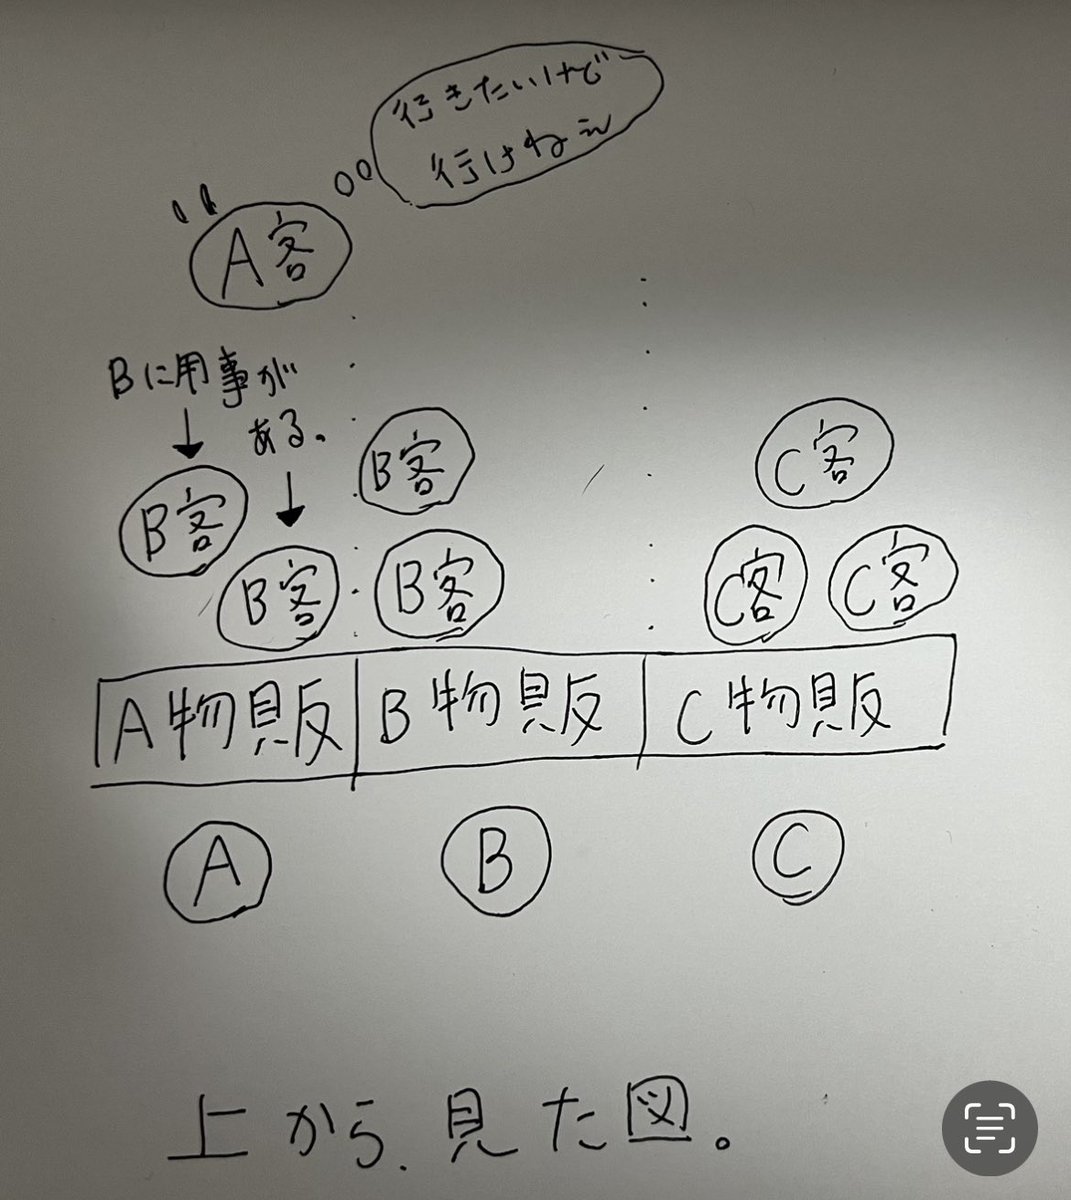 行きたいけど
行けねぇ
A客
Bに用事が
ある。
B客
B客
C客
B客
B客
C客
C客
A物販
B物販
C物販
A
B
C
上から見た図。